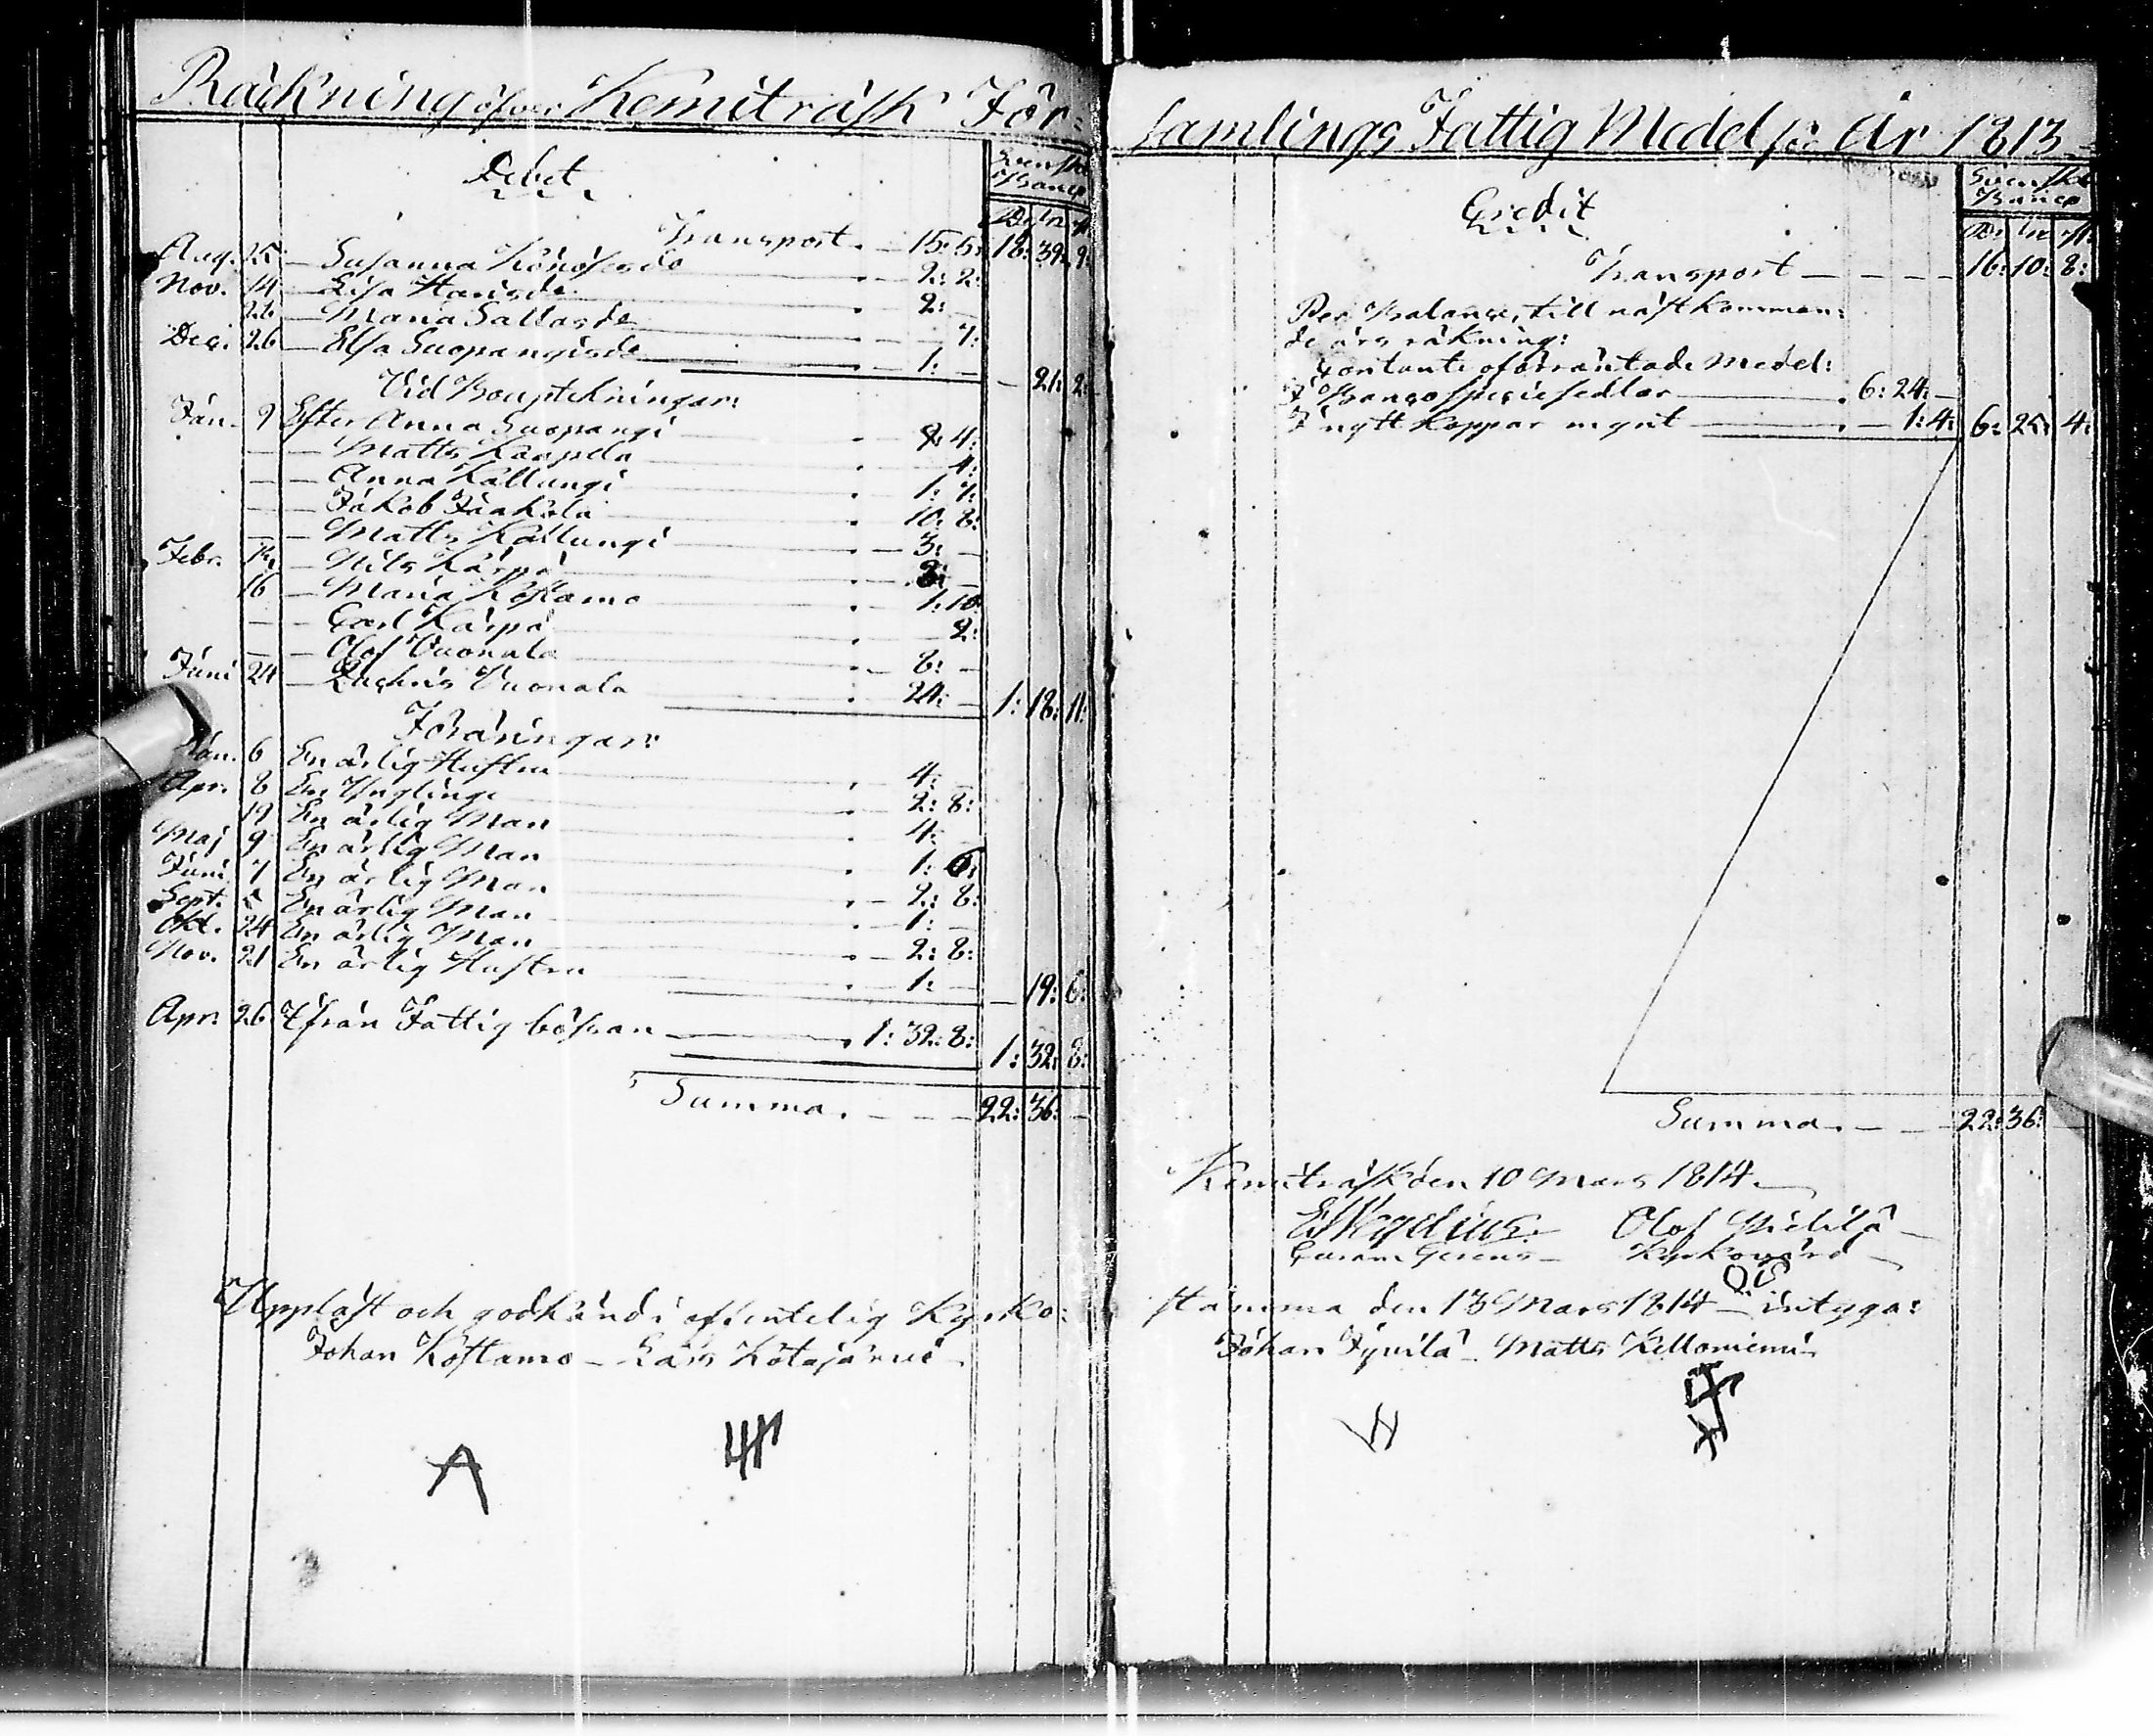 Räkning öfver Kemiträsk För=
Debet
Svenska
Banco
Rdr sk r.
Transport. 15: 5: 18: 39: 9:
Aug. 25 — Susanna — 2: 2:
Nov. 14 — Lisa — 2: —
22 — Maria Sallasde — 7:
Dec. 26 — Elsa Suopangisde — 1: — — 21: 2:
Vid Bouptekningar:
Jan. 9 Efter Anna Suopangi — 4:
— — Matts Karpela — 4:
— — Anna Kallungi — 1: 7:
— — Jakob Jaakola — 10: 8:
— — Matts Kallungi — 3: —
Febr. — Nils Kärpä
16 — Maria Kostamo — 1: 10:
— — Carl Kärpä — 2:
— — Olof Vuonala — 8: —
Juni 24 — Zachris Vuonala — 24: — 1: 18: 11:
Föräringar:
Jan. 6 En ärlig Hustru — 4: —
Apr. 8 En Yngling — 2: 8:
19 En ärlig Man — 4: —
Maj 9 En ärlig Man — 1: 6:
Juni 7 En ärlig Man — 2: 8:
Sept. 5 En ärlig Man — 1: —
Okt. 24 En ärlig Man — 2: 8:
Nov. 21 En ärlig Hustru — 1: — — 19: 6:
Apr. 26 Ifrån Fattig bössan — 1: 32: 8: 1: 32: 8:
Summa. — — — 22: 36: —
Uppläst och godkänd i offentelig Kyrko:
Johan Kostamo — Lars Kotajärvi
A
samlings Fattig Medel för År 1813
Credit
Svenska
Banco
Rdr sk r.
Transport — — — — 16: 10: 8:
Per Balance, till nästkomman:
de års räkning:
Contante oförräntade Medel:
I Banco Speciesedlar — 6: 24: —
I nytt Koppar mynt — 1: 4: 6: 25: 4:
Summa. — — — 22: 36:
Kemiträsk den 10 Mars 1814.
Olof Pietilä
Kyrkovärd
stämma den 13 Mars 1814 — intyga:
Johan Jyvilä — Matts Kelloniemi